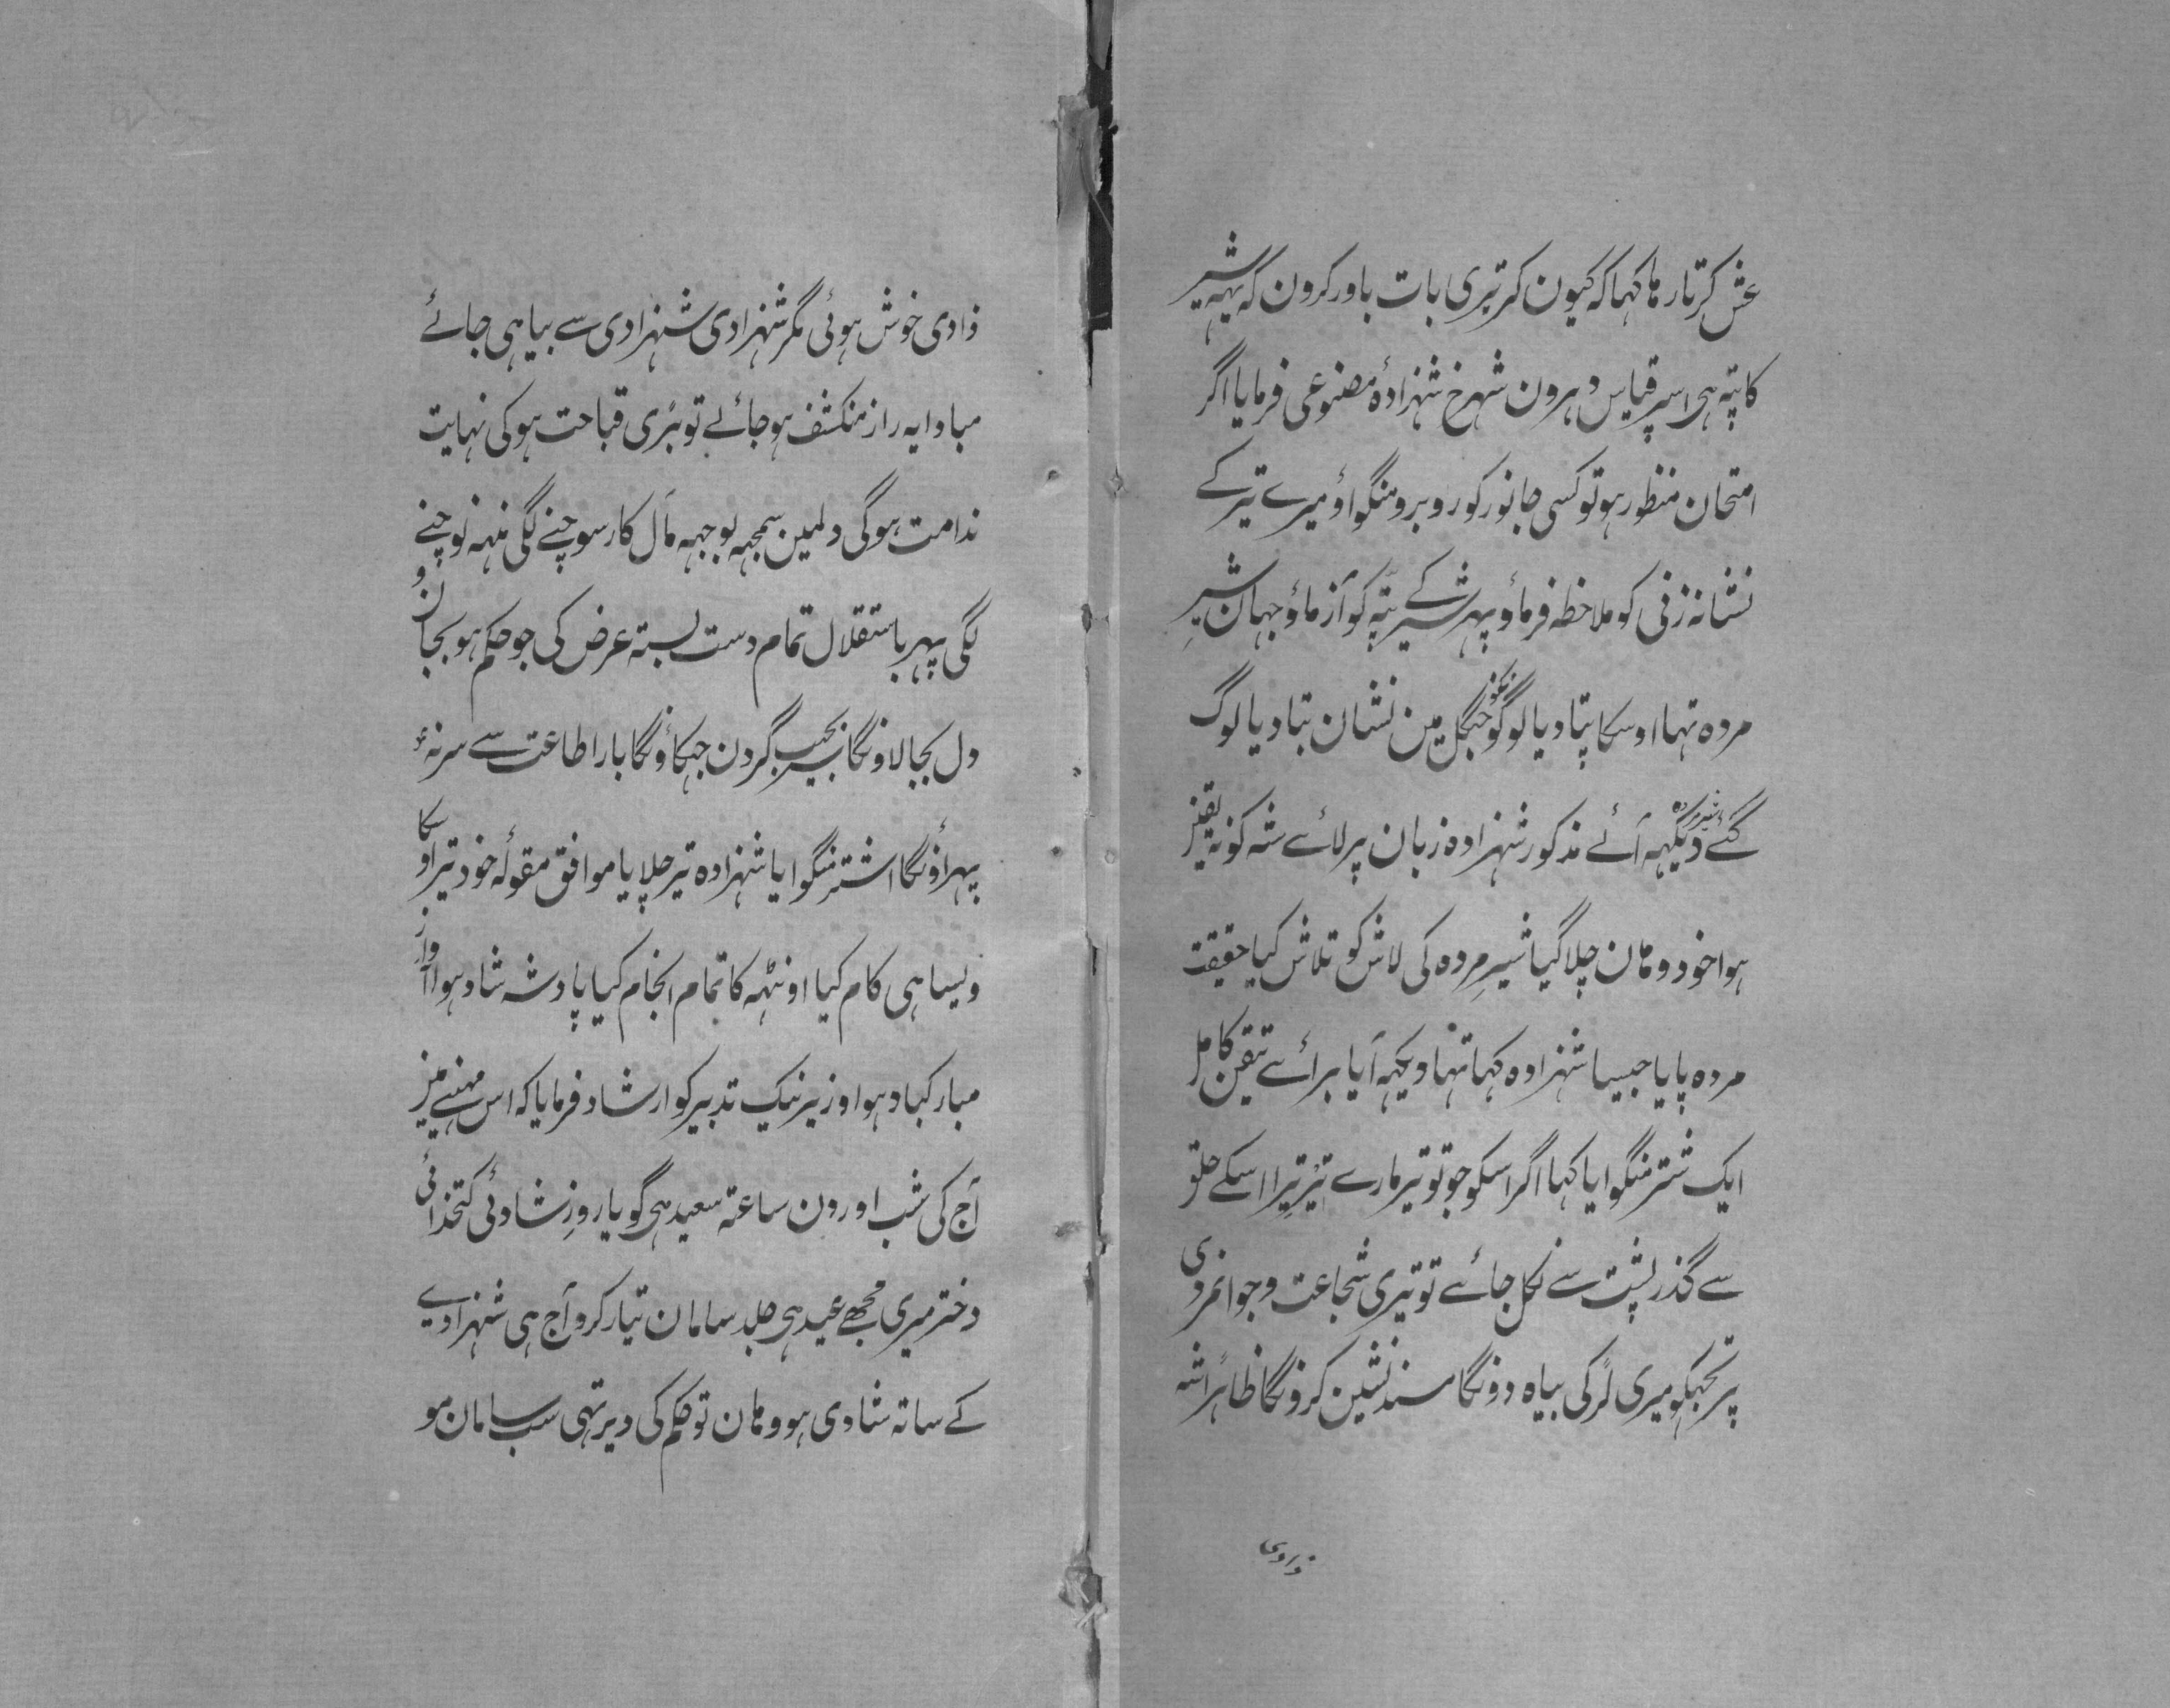 عش کرتا رہا کہا کہ کیون کر تیری بات باور کرون کہ یہہ شیر
کا پتہ ہی اسپر قیاس دہرون شہرخ شہزادۂ مصنوعی فرمایا اگر
امتحان منظور ہو تو کسی جانور کو روبرو منگواؤ میرے تیر کے
نشانہ زنی کو ملاحظہ فرماؤ پہر شیر کے پتہ کو آزماؤ جہان شیرِ
مردہ تہا اوسکا پتا دیا لوگونکو جنگل مین نشان بتا دیا لوگ
گئے شیر مردہ دیکہہ آئے مذکور شہزادہ زبان پر لائے شہ کو نہ یقین
ہوا خود وہان چلا گیا شیرِ مردہ کی لاش کو تلاش کیا حقیقت
مردہ پایا جیسا شہزادہ کہا تہا دیکہہ آیا برائے تیقن کامل
ایک شتر منگوایا کہا اگر اسکو جو تو تیر مارے تیر تیرا اسکے حلق
سے گذر پشت سے نکل جائے تو تیری شجاعت و جوانمردی
پر تجہکو میری لڑکی بیاہ دونگا مسند نشین کرونگا ظاہراً شہ
زادی
زادی خوش ہوئی مگر شہزادی شہزادی سے بیاہی جائے
مبادا یہ راز منکشف ہو جائے تو بڑی قباحت ہوگی نہایت
ندامت ہوگی دلمین سمجہہ بوجہہ مآل کار سوچنے لگی منہہ نوچنے
لگی پہر باستقلال تمام دست بستہ عرض کی جو حکم ہو بجان و
دل بجا لاونگا بجیب گردن جہکاؤنگا بار اطاعت سے سر نہ
پہراؤنگا اشتر منگوایا شہزادہ تیر چلایا موافق مقولۂ خود تیر اوسکا
ویسا ہی کام کیا اونٹہہ کا تمام انجام کیا پادشہ شاد ہوا آواز
مبارکباد ہوا وزیر نیک تدبیر کو ارشاد فرمایا کہ اس مہنے مین
آج کی شب اور دن ساعتہ سعید ہی گویا روزِ شادئی کتخدائی
دختر میری مجھے عید ہی جلد سامان تیار کرو آج ہی شہزادے
کے ساتہ شادی ہو وہان تو حکم کی دیر تہی سب سامان مو